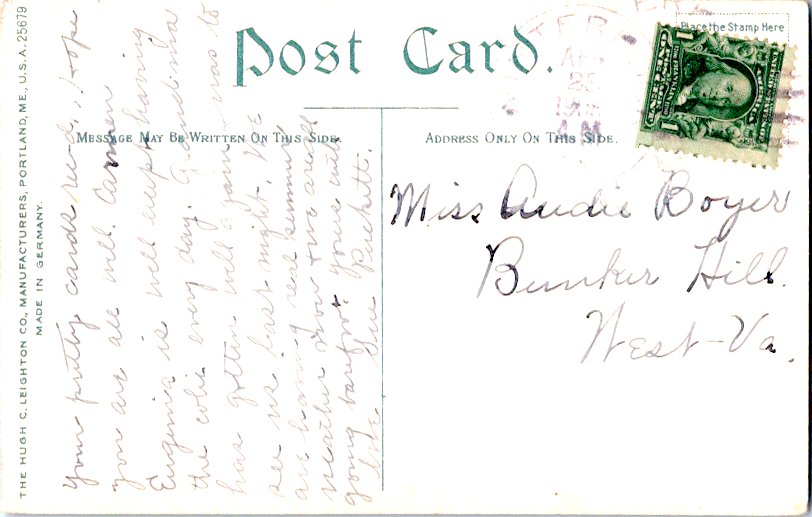 Post Card.
Place the Stamp Here
MESSAGE MAY BE WRITTEN ON THIS SIDE.
ADDRESS ONLY ON THIS SIDE.
THE HUGH C. LEIGHTON CO., MANUFACTURERS, PORTLAND, ME., U.S.A. 25679
MADE IN GERMANY.
Your pretty cards rec'd, Hope
you are all well. Carmen
Eugenia is well except having
the colic every day. Grandma
has gotten well again was to
see us last night. We
are having real summer
weather now & we are all
going barefoot. Yours with
love Sue Puckett.
Miss Audie Boyer
Bunker Hill.
West-Va.
1
1